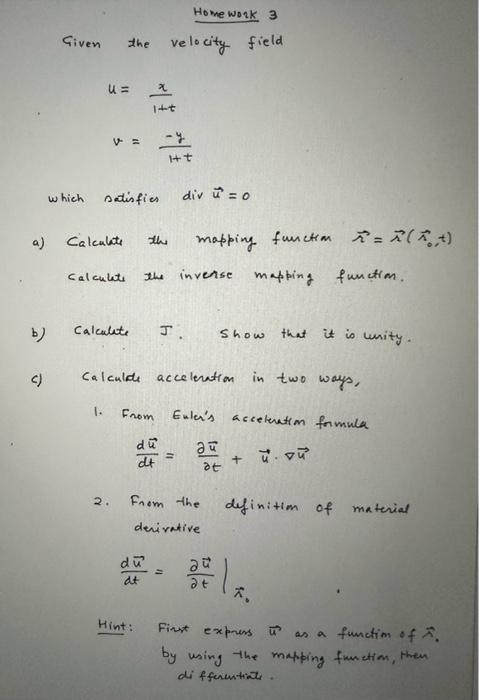 Homework 3
Given the velocity field
u = x / 1+t
v = -y / 1+t
which satisfies div u⃗ = 0
a) Calculate the mapping function x⃗ = x⃗(x⃗₀,t)
Calculate the inverse mapping function.
b) Calculate J. Show that it is unity.
c) Calculate acceleration in two ways,
1. From Euler's acceleration formula
du⃗/dt = ∂u⃗/∂t + u⃗ · ∇u⃗
2. From the definition of material
derivative
du⃗/dt = ∂u⃗/∂t |x⃗₀
Hint: First express u⃗ as a function of x⃗₀
by using the mapping function, then
differentiate.